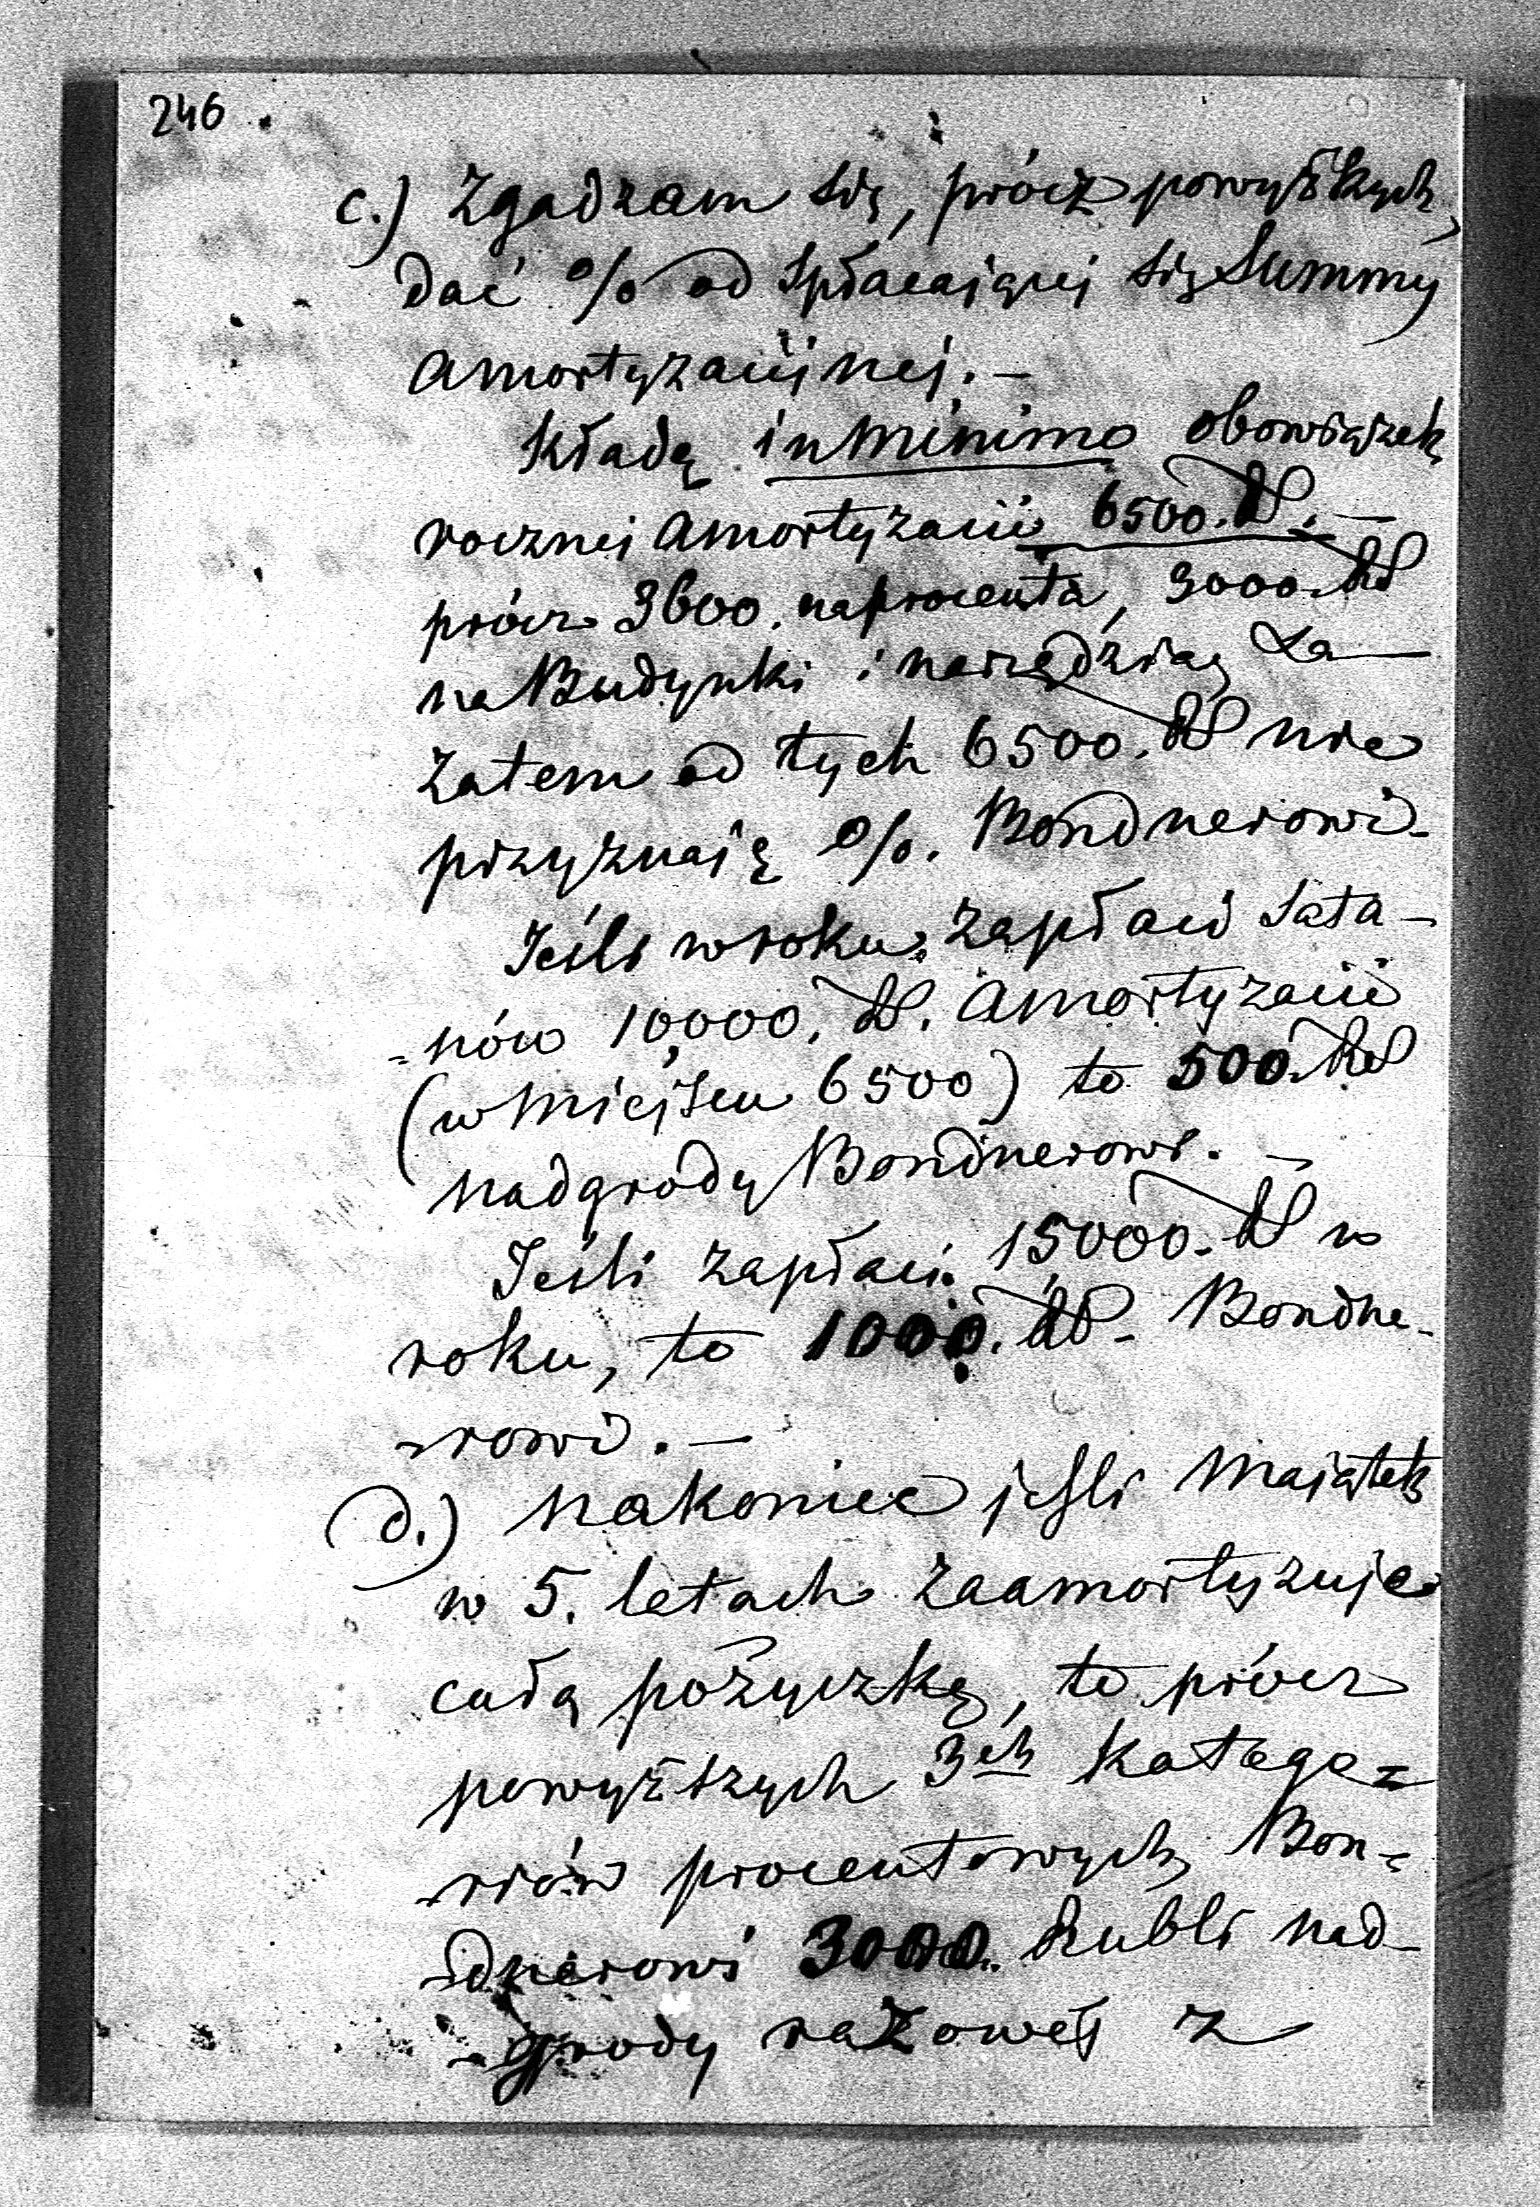 246.
c.) Zgadzam się, prócz powyższych,
dać % od spłacającej się Summy
amortyzacijnej. —
Kładę in minimo obowiązek
rocznej amortyzacii 6500. R. —
prócz 3600. na procenta, 3000. R
na Budynki i narzędzia; Za—
zatem od tych 6500. R nie
przyznaję %. Bondnerowi.
Jeśli w roku zapłaci Sata-
=nów 10,000. R. amortyzacii
(w miejscu 6500) to 500 R
nadgrody Bondnerowi. —
Jeśli zapłaci 15000. R w
roku, to 1000. R. Bondne-
-rowi. —
d.) Nakoniec jeśli majątek
w 5. letach zaamortyzuje
całą pożyczkę, to prócz
powyższych 3ch katego=
-riów procentowych, Bon-
-dnerowi 3000. Rubli nad-
-grody razowej z